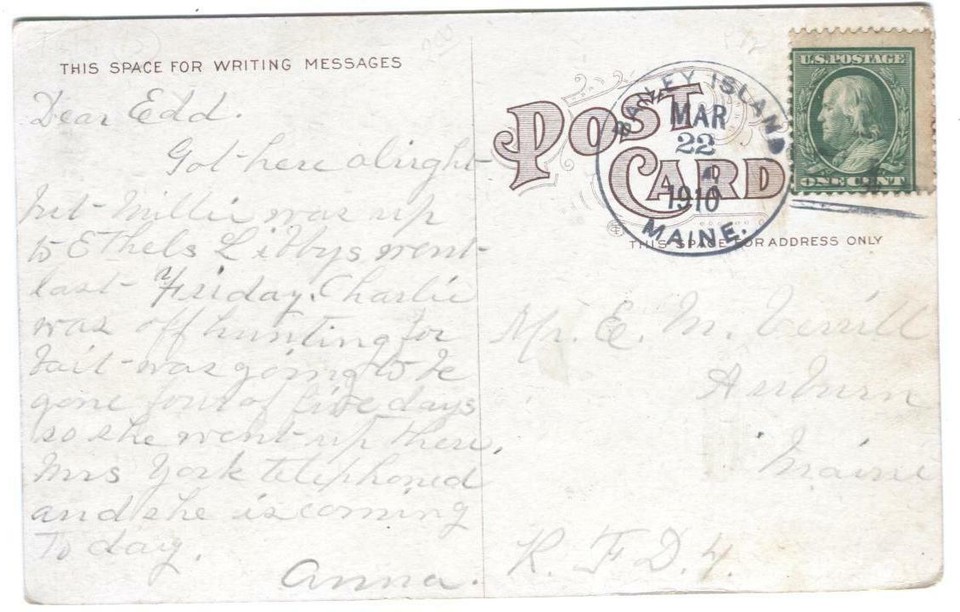 THIS SPACE FOR WRITING MESSAGES
Dear Edd.
Got here alright
but Millie was up
to Ethels Libbys went
last Friday. Charlie
was off hunting for
bait was going to be
gone four of five days
so she went up there.
Mrs York telephoned
and she is coming
To day.
Anna.
POST CARD
BAILEY ISLAND
MAR
22
1910
MAINE.
U.S. POSTAGE
ONE CENT
THIS SPACE FOR ADDRESS ONLY
Mr. E. M. Verrill
Auburn
Maine
R. F. D. 4.